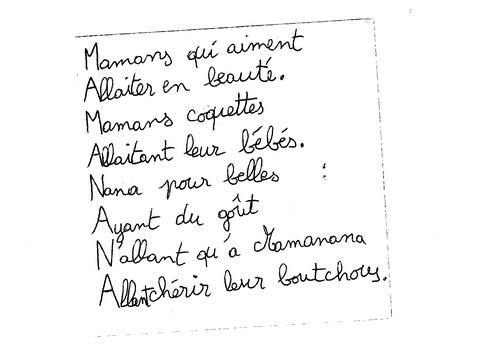 Mamans qui aiment
Allaiter en beauté.
Mamans coquettes
Allaitant leur bébés.
Nana pour belles :
Ayant du goût
N'allant qu'à Mamanana
Allant chérir leur boutchous.